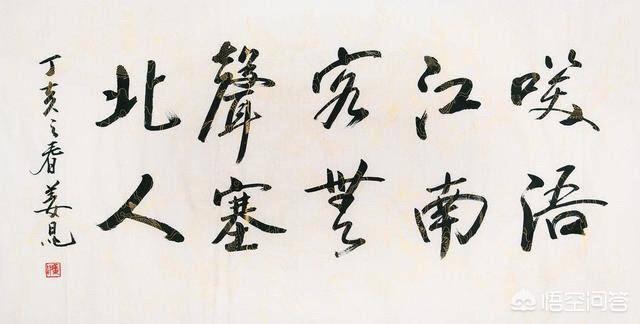 咲语
江南
客無
聲塞
北人
丁亥之春姜昆
悟空问答